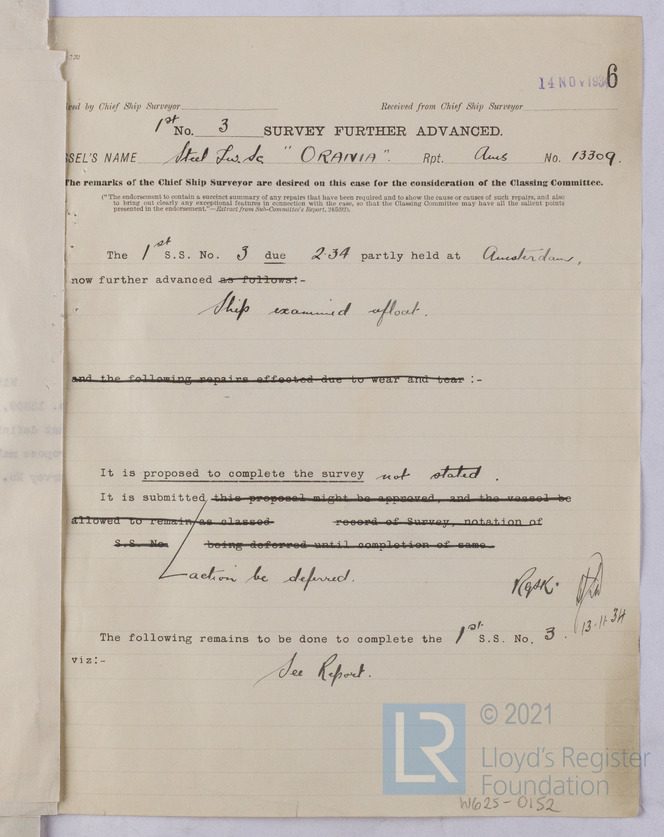 14 NOV 193
6
ired by Chief Ship Surveyor Received from Chief Ship Surveyor
1st No. 3 SURVEY FURTHER ADVANCED.
SSEL'S NAME Steel Tw. Sc "ORANIA". Rpt. Ams No. 13309.
The remarks of the Chief Ship Surveyor are desired on this case for the consideration of the Classing Committee.
("The endorsement to contain a succinct summary of any repairs that have been required and to show the cause or causes of such repairs, and also
to bring out clearly any exceptional features in connection with the case, so that the Classing Committee may have all the salient points
presented in the endorsement."—Extract from Sub-Committee's Report,
The 1st S.S. No. 3 due 2.34 partly held at Amsterdam,
now further advanced as follows:-
Ship examined afloat.
and the following repairs effected due to wear and tear :-
It is proposed to complete the survey not stated.
It is submitted this proposal might be approved, and the vessel be
allowed to remain as classed record of Survey, notation of
S.S. No. being deferred until completion of same.
action be deferred.
13.11.34
The following remains to be done to complete the 1st S.S. No. 3.
viz:-
See Report.
LR © 2021
Lloyd's Register
Foundation
W625-0152